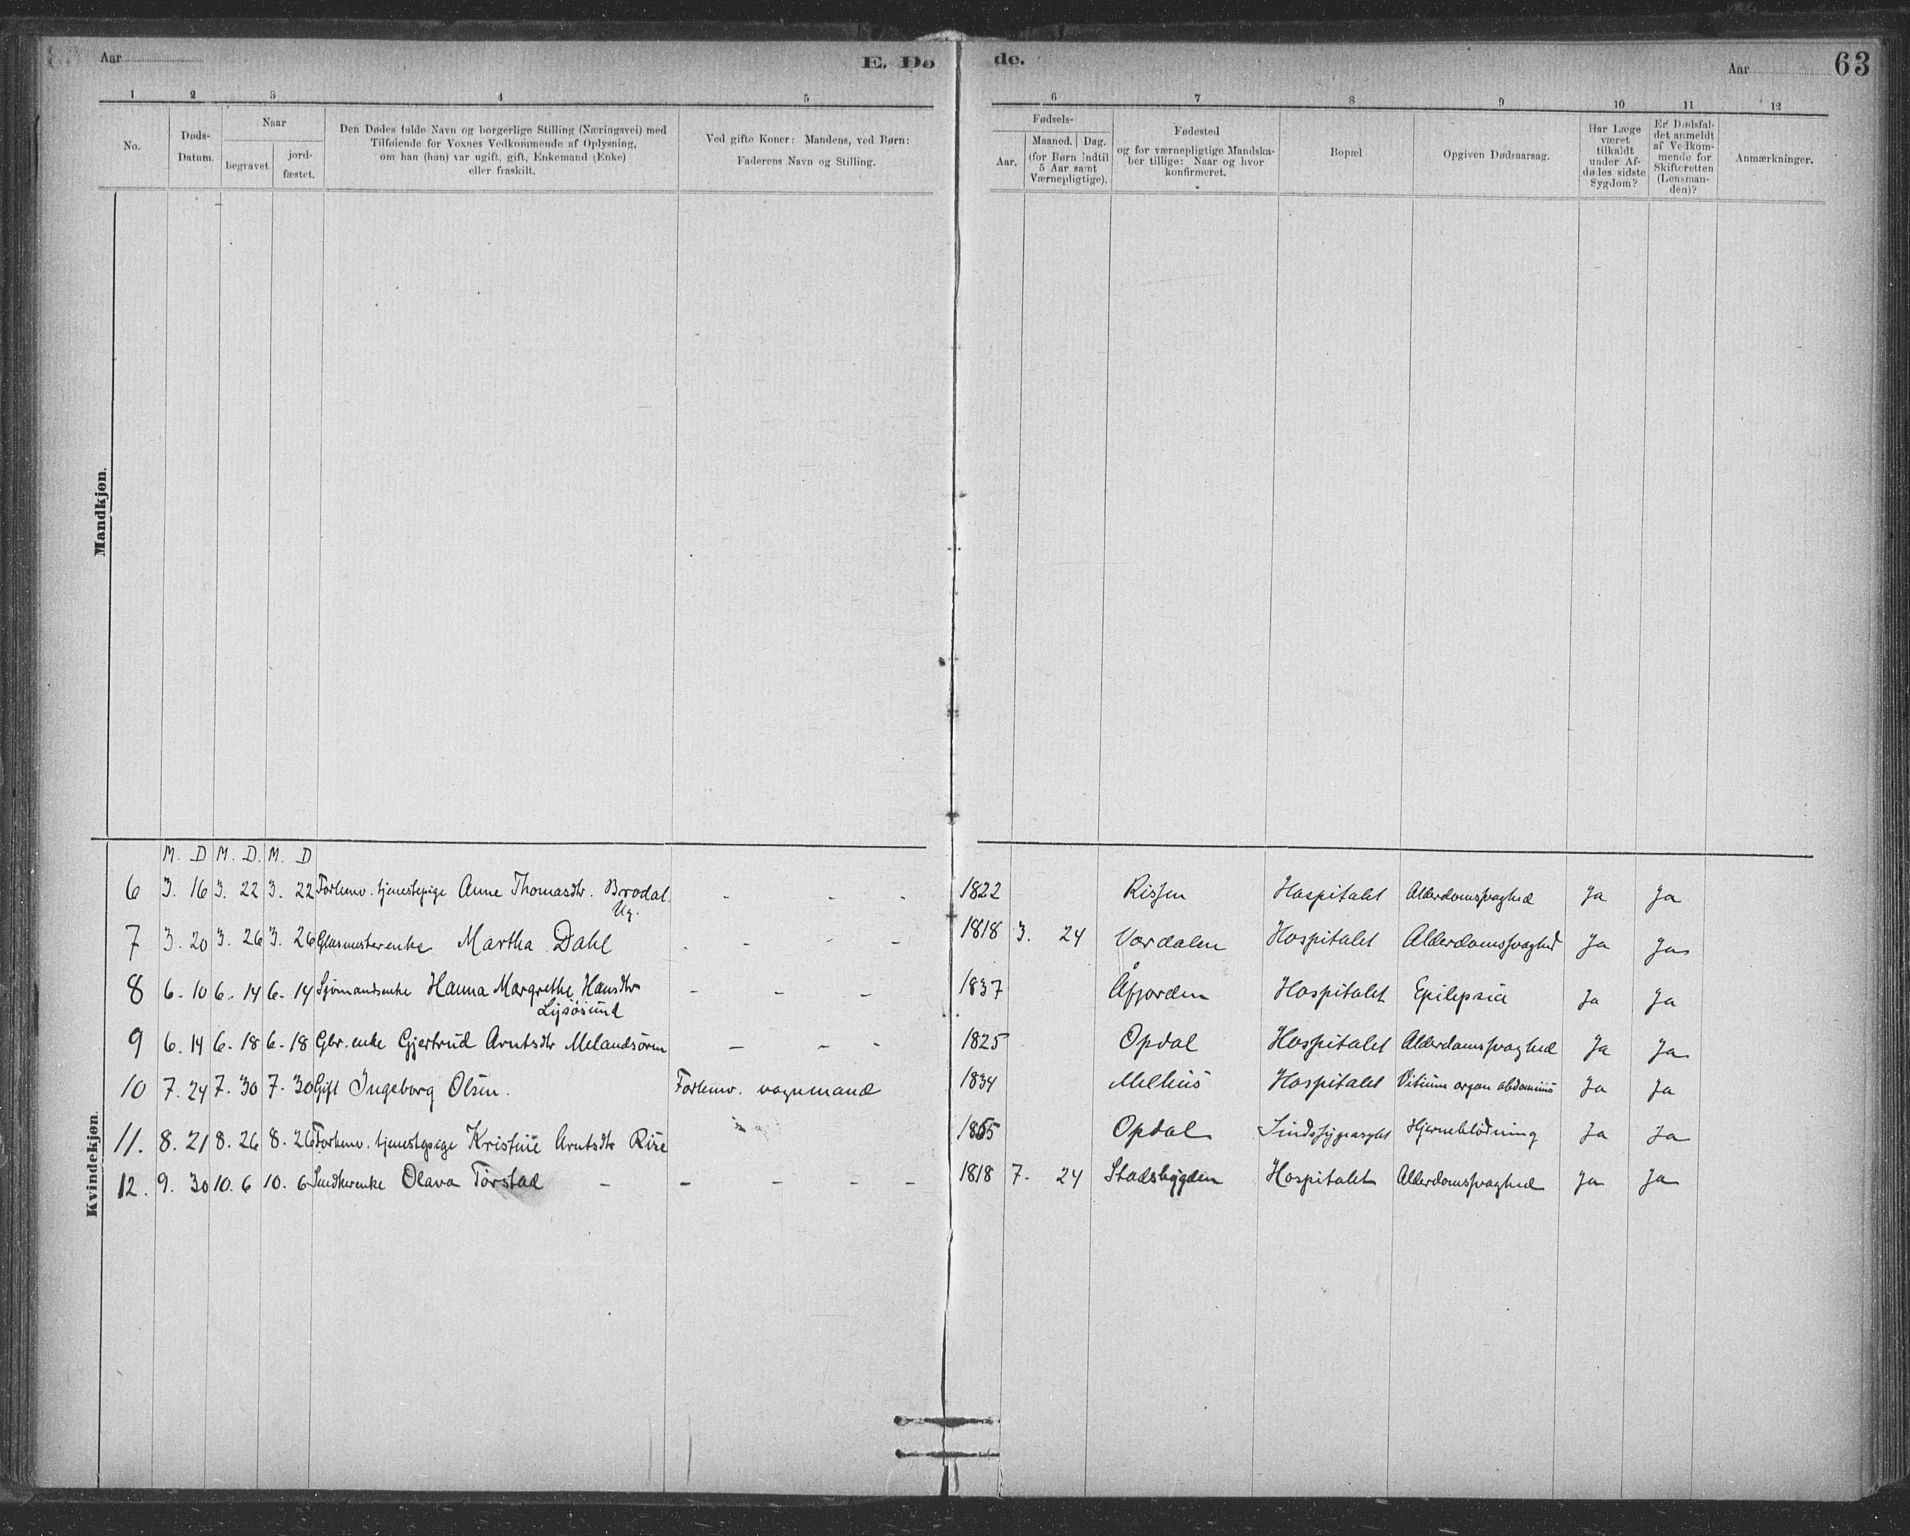 Aar
E. Dø
de.
Aar
63
1 2 3 4 5 6 7 8 9 10 11 12
No.
Døds-
Datum.
Naar
begravet.
jord-
fæstet.
Den Dødes fulde Navn og borgerlige Stilling (Næringsvei) med
Tilføiende for Voxnes Vedkommende af Oplysning,
om han (hun) var ugift, gift, Enkemand (Enke)
eller fraskilt.
Ved gifte Koner: Mandens, ved Børn:
Faderens Navn og Stilling.
Fødsels-
Aar.
Maaned. Dag.
(for Børn indtil
5 Aar samt
Værnepligtige).
Fødested
og for værnepligtige Mandska-
ber tillige: Naar og hvor
konfirmeret.
Bopæl
Opgiven Dødsaarsag.
Har Læge
været
tilkaldt
under Af-
dødes sidste
Sygdom?
Er Dødsfal-
det anmeldt
af Vedkom-
mende for
Skifteretten
(Lensman-
den)?
Anmærkninger.
Mandkjøn.
Kvindekjøn.
M. D M. D. M. D
6 3. 16 3. 22 3. 22 Forhenv. tjenestepige Anne Thomasdtr. Brodal. - - - 1822 Rissen Hospitalet Alderdomssvaghed Ja Ja
Ug.
7 3. 20 3. 26 3. 26 Glasmesterenke Martha Dahl - - - - 1818 3. 24 Værdalen Hospitalet Alderdomssvaghed Ja Ja
8 6. 10 6. 14 6. 14 Sjømandsenke Hanna Margrethe Hansdtr - - - 1837 Åfjorden Hospitalet Epilepsia Ja Ja
Lysøsund
9 6. 14 6. 18 6. 18 Gbr. enke Gjertrud Arntsdtr Melandsøren - - - 1825 Opdal Hospitalet Alderdomssvaghed Ja Ja
10 7. 24 7. 30 7. 30 Gift Ingeborg Olsen. Forhenv. vognmand 1834 Melhus Hospitalet Vitium organ abdominis Ja Ja
11. 8. 21 8. 26 8. 26 Forhenv. tjenestepige Kristine Arntsdtr Rise 1865 Opdal Sindssygeasylet Hjerneblödning Ja Ja
12. 9. 30 10. 6 10. 6 Olava Tørstad - - - - - 1818 7. 24 Stadsbygden Hospitalet Alderdomssvaghed Ja Ja